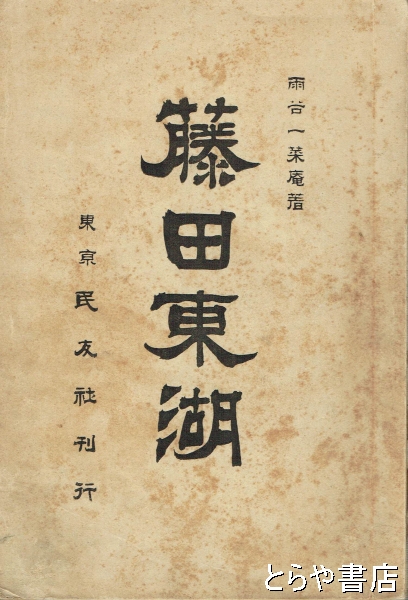 雨谷一菜庵著
藤田東湖
東京民友社刊行
とらや書店